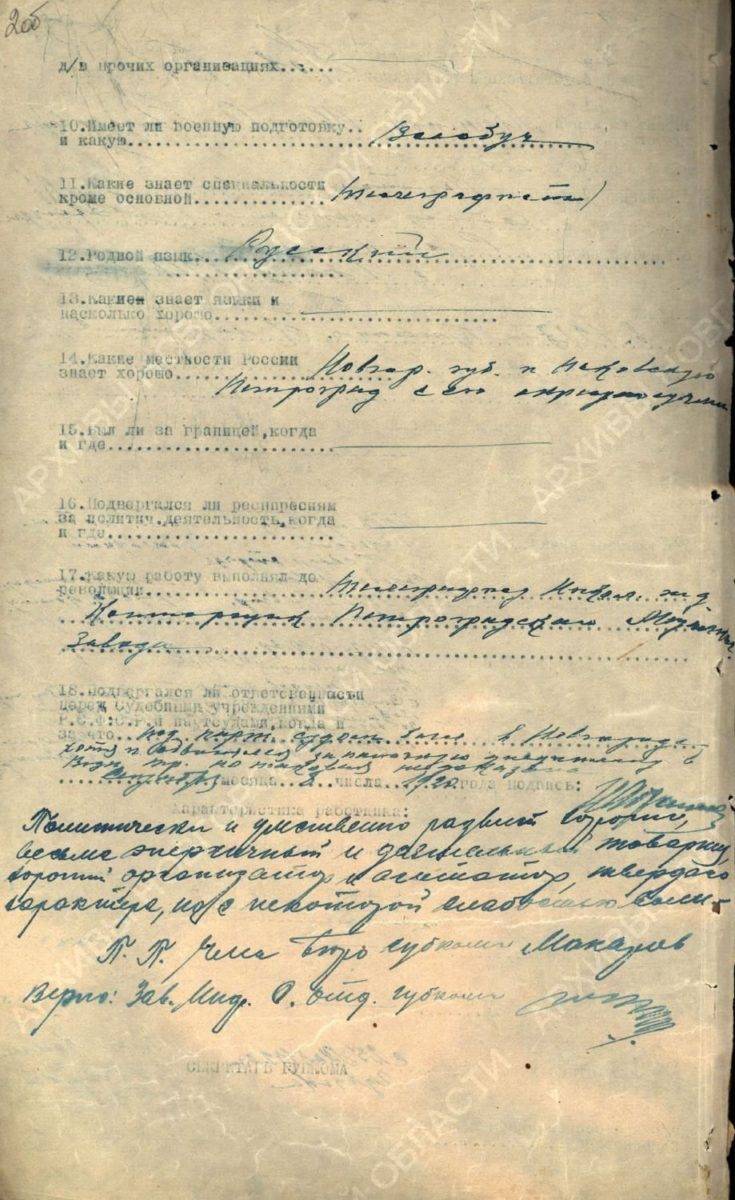 2об
д/в прочих организациях......
10.Имеет ли военную подготовку..
и какую.................... Всеобуч
11.Какие знает специальности
кроме основной............. Телеграфист
12.Родной язык... Русский
13.Какие знает языки и
насколько хорошо
14.Какие местности России
знает хорошо... Новгор. губ. и Псковскую
Петроград с его окрестностями
15.Был ли за границей,когда
и где
16.Подвергался ли респресиям
за политич.деятельность,когда
и где
17.Какую работу выполнял до
революции... Телеграфист Никол. ж.д.
Конторщик Петроградского
завода
18.Подвергался ли ответственности
перед Судебными учреждениями
Р.С.Ф.С.Р.и партсудами,когда и
за что... под парт. судом был в Новгороде
хотя и
Сентября месяца 2 числа года подпись:
Характеристика работника:
Политически и умственно развит хорошо,
весьма энергичный и деятельный товарищ,
хороший организатор и агитатор, твердого
характера, но с некоторой слабостью
П. П. Член бюро губкома Макаров
Верно: Зав. Инф. С. Отд. губкома
СЕКРЕТАРЬ ГУБКОМА
АРХИВЫ НОВГОРОДСКОЙ ОБЛАСТИ